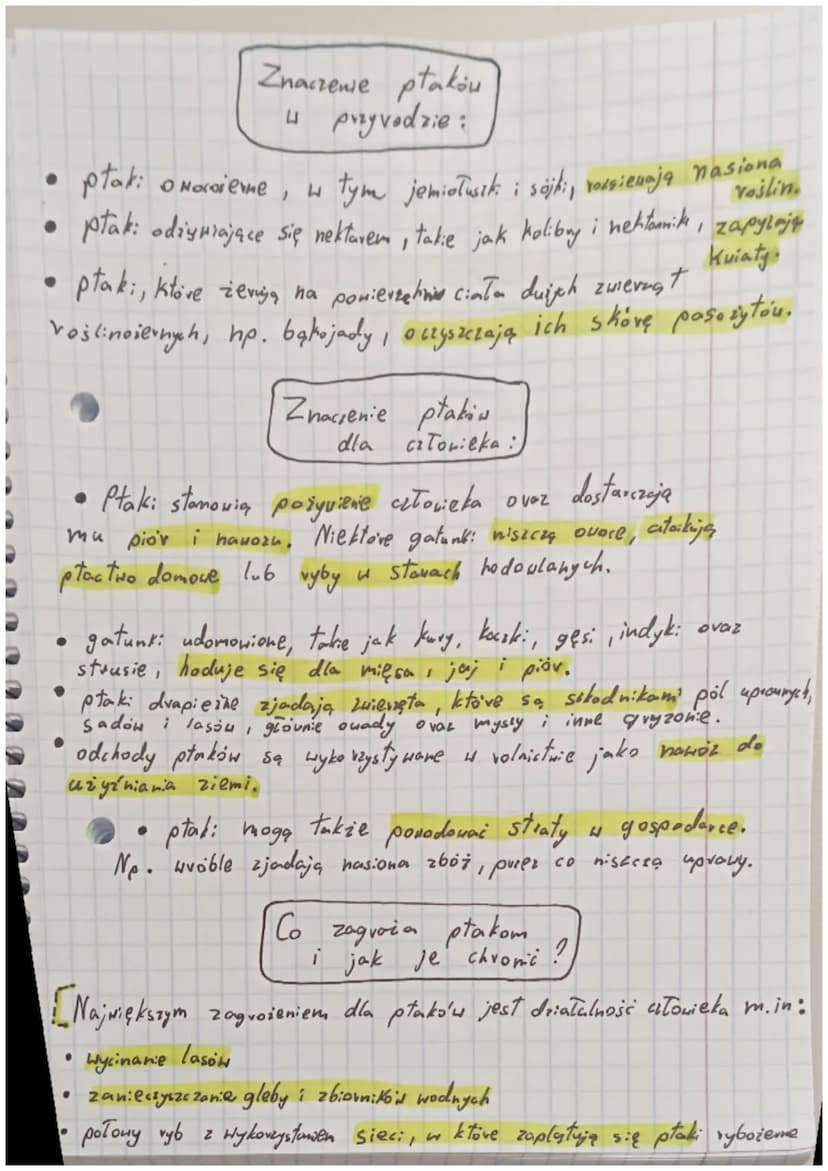 Znaczenie ptaków
w przyrodzie:
• ptaki owocożerne, w tym jemiołuszki i sójki, rozsiewają nasiona
roślin.
• ptaki odżywiające się nektarem, takie jak kolibry i nektarniki, zapylają
kwiaty.
• ptaki, które żerują na powierzchni ciała dużych zwierząt
roślinożernych, np. bąkojady, oczyszczają ich skórę pasożytów.
Znaczenie ptaków
dla człowieka:
• Ptaki stanowią pożywienie człowieka oraz dostarczają
mu piór i nawozu. Niektóre gatunki niszczą owoce, atakują
ptactwo domowe lub ryby w stawach hodowlanych.
• gatunki udomowione, takie jak kury, kaczki, gęsi, indyki oraz
strusie, hoduje się dla mięsa, jaj i piór.
• ptaki drapieżne zjadają zwierzęta, które są szkodnikami pól uprawnych,
sadów i lasów, głównie owady oraz myszy i inne gryzonie.
• odchody ptaków są wykorzystywane w rolnictwie jako nawóz do
użyźniania ziemi.
• ptaki mogą także powodować straty w gospodarce.
Np. wróble zjadają nasiona zbóż, przez co niszczą uprawy.
Co zagraża ptakom
i jak je chronić?
[Największym zagrożeniem dla ptaków jest działalność człowieka m.in:
• wycinanie lasów
• zanieczyszczanie gleby i zbiorników wodnych
• połowy ryb z wykorzystaniem sieci, w które zaplątują się ptaki rybożerne